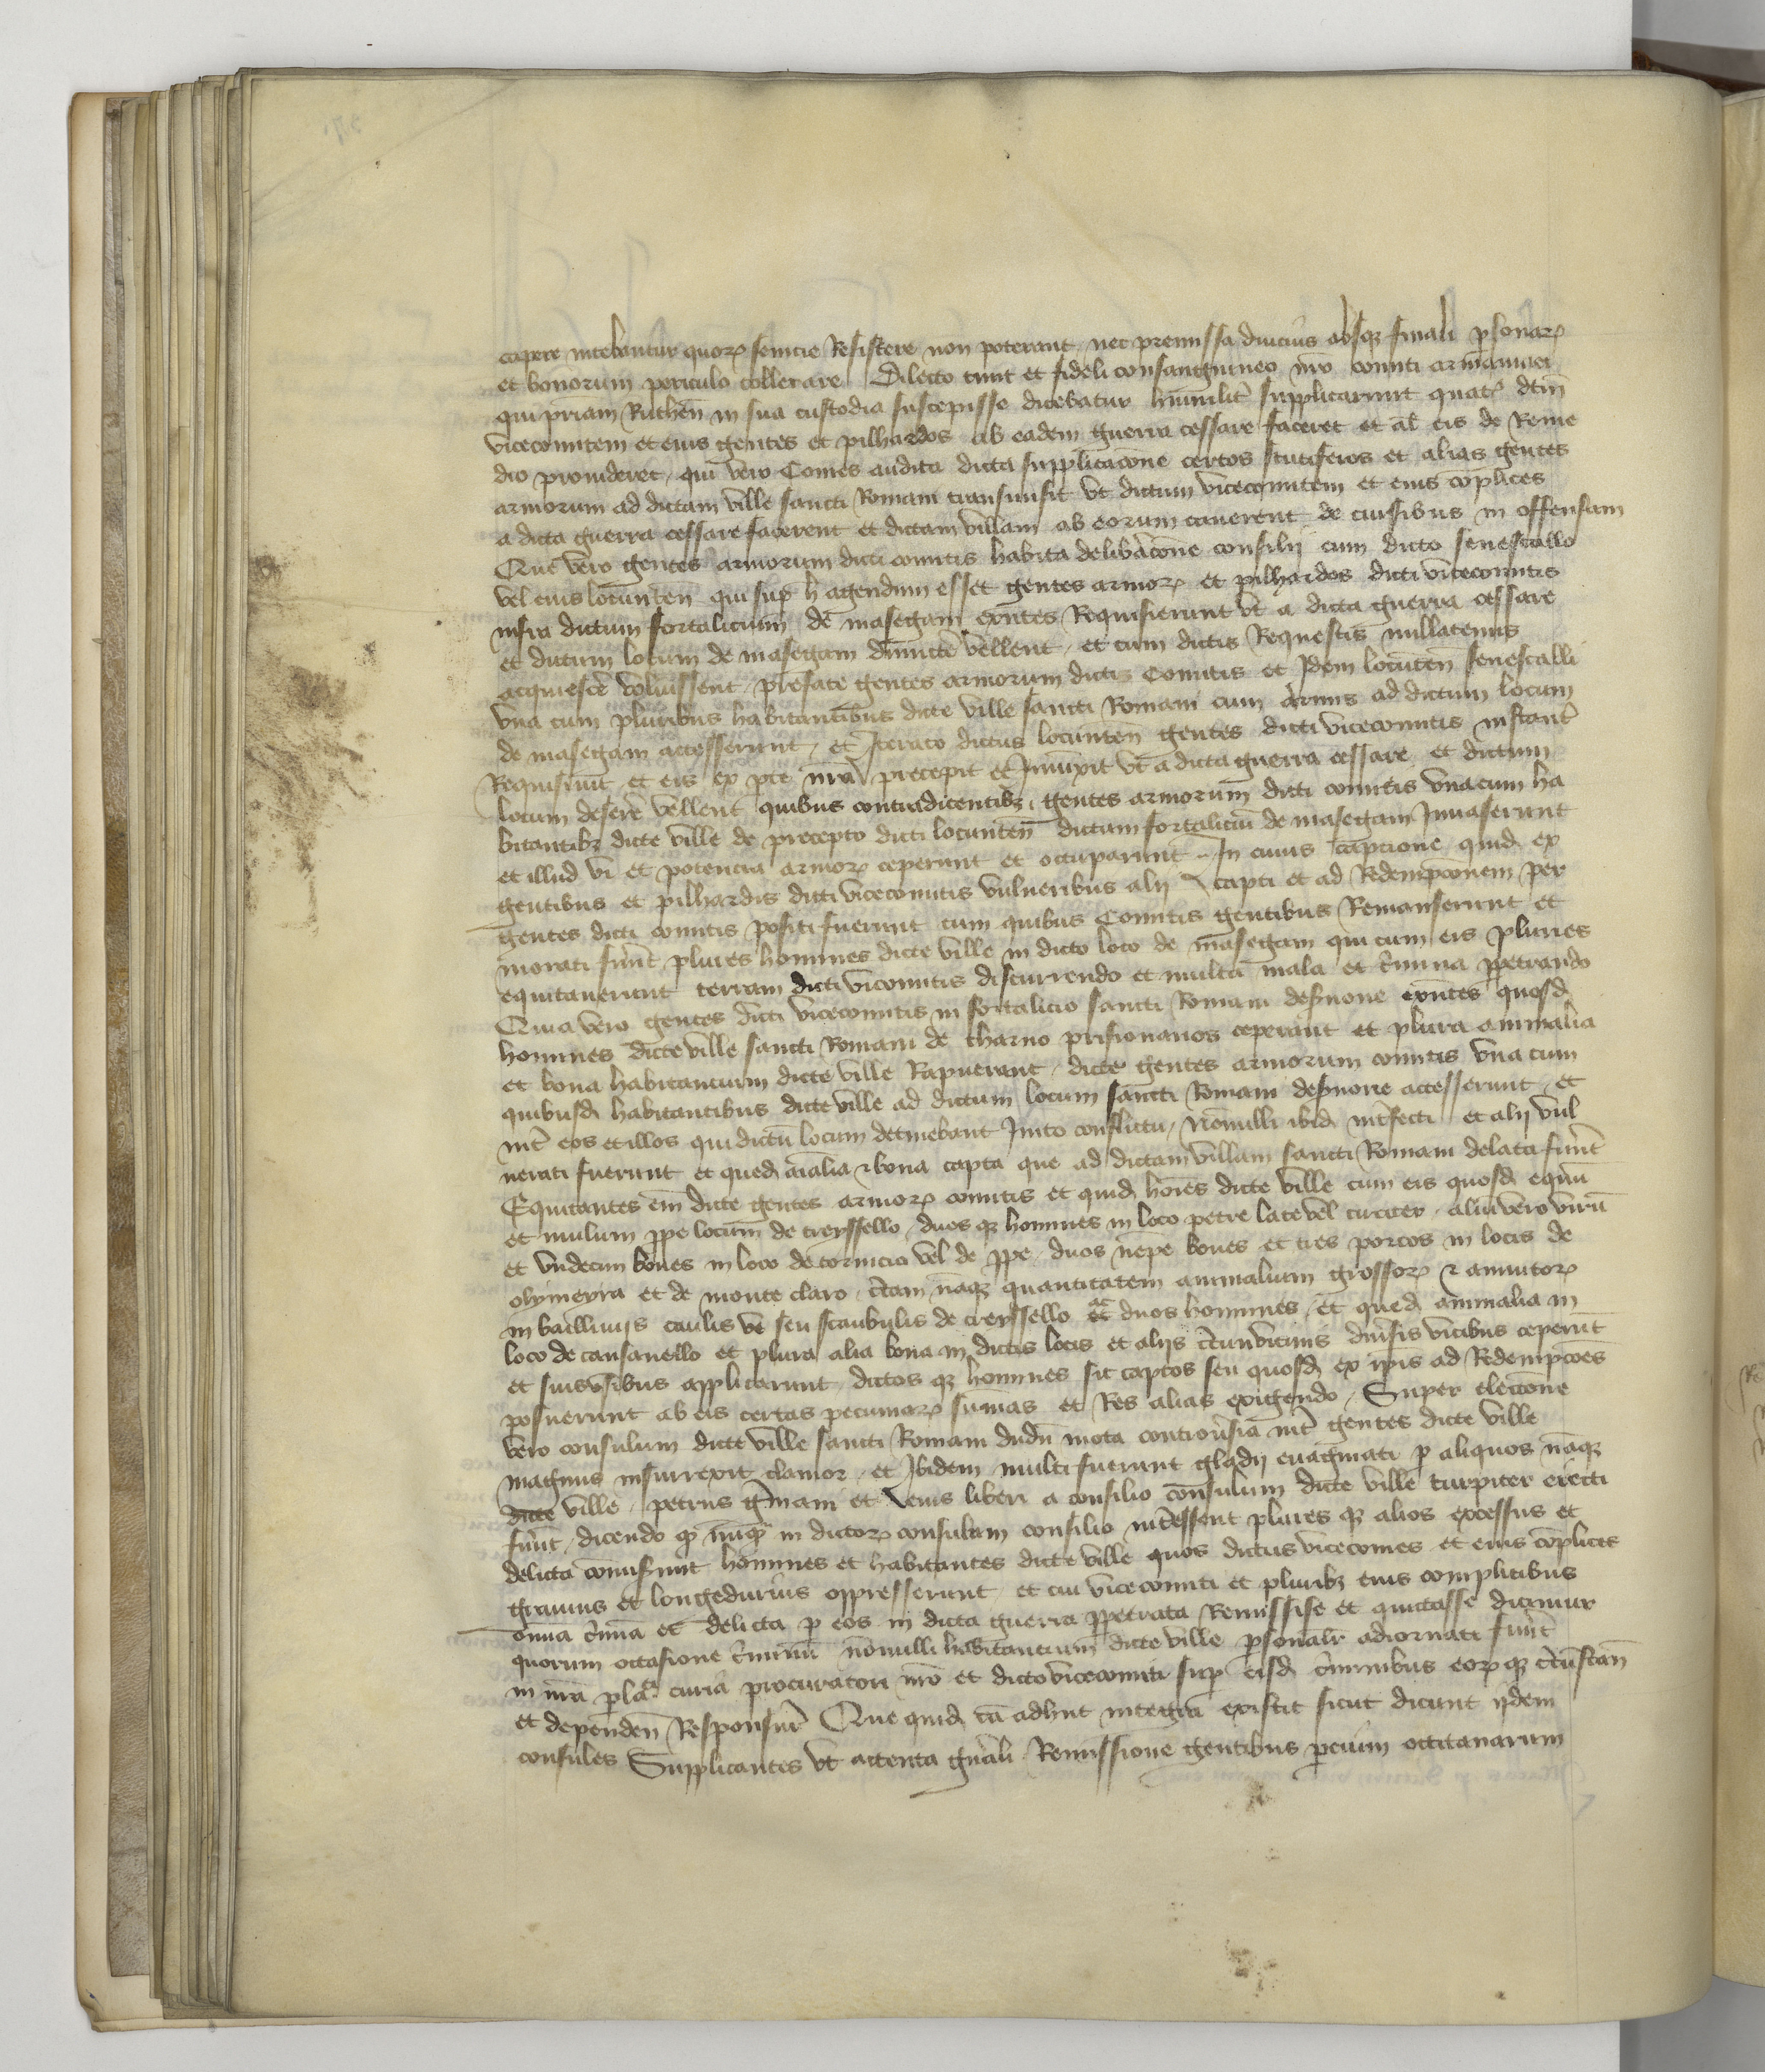 capere nitebantur quorum sevicie Resistere non poterant nec premissa diucius absque finali personarum
et bonorum periculo tollerare Dilecto tunc et fideli consanguineo nostro comiti armaniaci
qui patriam Ruthen in sua custodia suscepisse dicebatur humiliter supplicarunt quatenus dictum
vicecomitem et eius gentes et pilhardos ab eadem guerra cessare faceret et alias eis de Reme
dio provideret, qui vero Comes audita dicta supplicacione certos scutiferos et alias gentes
armorum ad dictam ville sancti Romani transmisit ut dictum vicecomitem et eius complices
a dicta guerra cessare facerent et dictam villam ab eorum caverent de cursibus in offensam
Que vero gentes armorum dicti comitis habita deliberacione consilii cum dicto senescallo
vel eius locumten qui super hoc agendum esset gentes armorum et pilhardos dicti vicecomitis
infra dictum fortalicium de masegam existentes Requisierunt ut a dicta guerra cessare
et dictum locum de masegam dimittere vellent, et cum dictis Requestis nullatenus
acquiescere voluissent, prefate gentes armorum dicti Comitis et Idem locumten senescalli
una cum pluribus habitantibus dicte ville sancti Romani cum armis ad dictum locum
de masegam accesserunt, et Iterato dictus locumten gentes dicti vicecomitis instanter
Requisivit et eis ex parte nostra precepit et Iniunxit ut a dicta guerra cessare et dictum
locum deserere vellent quibus contradicentibus, gentes armorum dicti comitis una cum ha
bitantibus dicte ville de precepto dicti locumten dictum fortalicium de masegam Invaserunt
et illud vi et potencia armorum ceperunt et occuparunt In cuius captione quidam ex
gentibus et pilhardis dicti vicecomitis vulneribus alii capti et ad Redempcionem per
gentes dicti comitis positi fuerunt cum quibus Comitis gentibus Remanserunt et
morati fuerunt plures homines dicte ville in dicto loco de masegam qui cum eis pluries
equitaverunt terram dicti vicomitis discurrendo et multa mala et crimina perpetrando
Quia vero gentes dicti vicecomitis in fortalicio sancti Romani desmone existentes quosdam
homines dicte ville sancti Romani de tharno prisionarios ceperant et plura animalia
et bona habitancium dicte ville Rapuerant, dicte gentes armorum comitis una cum
quibusdam habitantibus dicte ville ad dictum locum sancti Romani desmone accesserunt, et
inter eos et illos qui dictum locum detinebant Inito conflictu, Nonnulli ibidem interfecti et alii vul
nerati fuerunt et quedam animalia et bona capta que ad dictam villam sancti Romani delata fuerunt
Equitantes enim dicte gentes armorum comitis et quidam homines dicte ville cum eis quosdam equum
et mulum prope locum de creyssello, duos que homines in loco petre late vel circiter, alium vero virum
et undecim boves in loco de cornicio vel de prope, duos nempe boves et tres porcos in locis de
olymeyra et de monte claro, certam namque quantitatem animalium grossorum et aminutorum
in bailliviis caulis ve seu stabulis de creyssello ac duos homines, et quedam animalia in
loco de causanello et plura alia bona in dictis locis et aliis circumvicinis diversis vicibus ceperunt
et suis usibus applicarunt, dictos que homines sic captos seu quosdam ex ipsis ad Redempciones
posuerunt ab eis certas pecuniarum summas et Res alias exigendo, Super eleccione
vero consulum dicte ville sancti Romani dudum mota controversia inter gentes dicte ville
magnus insurrexit clamor, et Ibidem multi fuerunt gladii evaginati per aliquos namque
dicte ville, petrus germani et eius liberi a consilio consulum dicte ville turpiter eiecti
fuerunt, dicendo quod nunquam in dictorum consulum consilio interessent plures que alios excessus et
delicta commiserunt homines et habitantes dicte ville quos dictus vicecomes et eius complices
gravius et longe durius oppresserunt et cui vicecomiti et pluribus eius complicibus
omnia crimina et delicta per eos in dicta guerra perpetrata Remisisse et quictasse dicimur
quorum occasione criminum nonnulli habitancium dicte ville personaliter adiornati fuerunt
in nostra parlamenti curia procuratori nostro et dicto vicecomiti super eisdem criminibus eorum que circumstan
et dependen Responsuri Que quidem causa adhuc integra existit sicut dicunt iidem
consules Supplicantes ut attenta generali Remissione gentibus parcium occitanarum